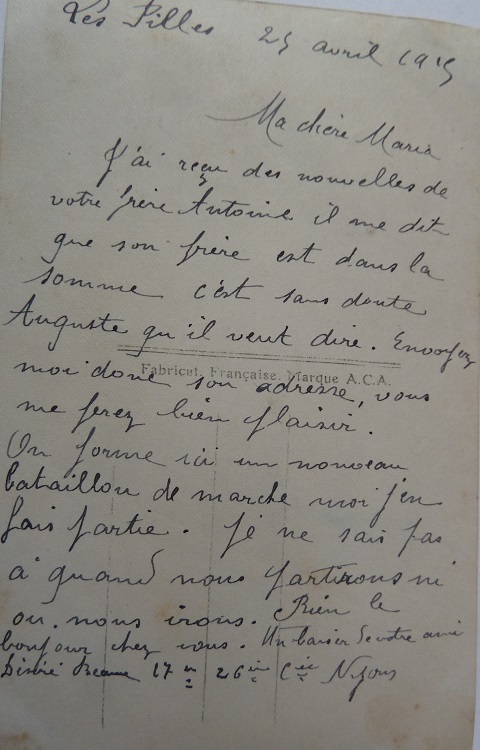 Les Pilles 25 avril 1915
Ma chère Maria
J'ai reçu des nouvelles de
votre frère Antoine il me dit
que son frère est dans la
somme c'est sans doute
Auguste qu'il veut dire. Envoyez
Fabricat. Française. Marque A.C.A.
moi donc son adresse, vous
me ferez bien plaisir.
On forme ici un nouveau
bataillon de marche moi j'en
fais partie. Je ne sais pas
à quand nous partirons ni
où nous irons. Bien le
bonjour chez vous. Un baiser de votre ami
Désiré 17 26 Cie Nyons